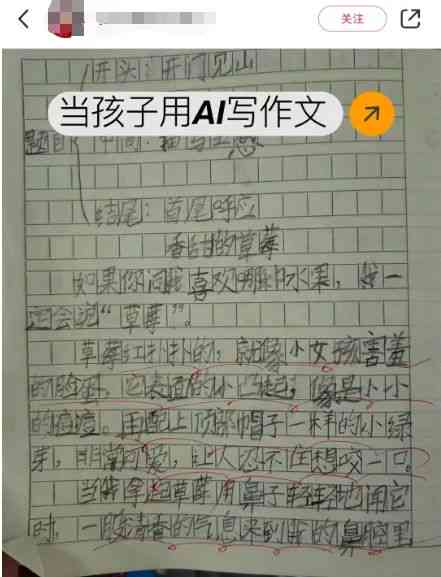 关注
开头：开门见山
当孩子用AI写作文
题目 中间：
结尾：首尾呼应
香甜的草莓
如果你问我喜欢哪种水果，我一
定会说“草莓”。
草莓红扑扑的，就像小女孩害羞
的脸蛋，它表面的小凸起，像是小小
的痘痘。再配上顶部帽子一样的小绿
芽，非常可爱，让人忍不住想咬一口。
当我拿起草莓用鼻子轻轻地闻它
时，一股清香的气息来到我的鼻腔里